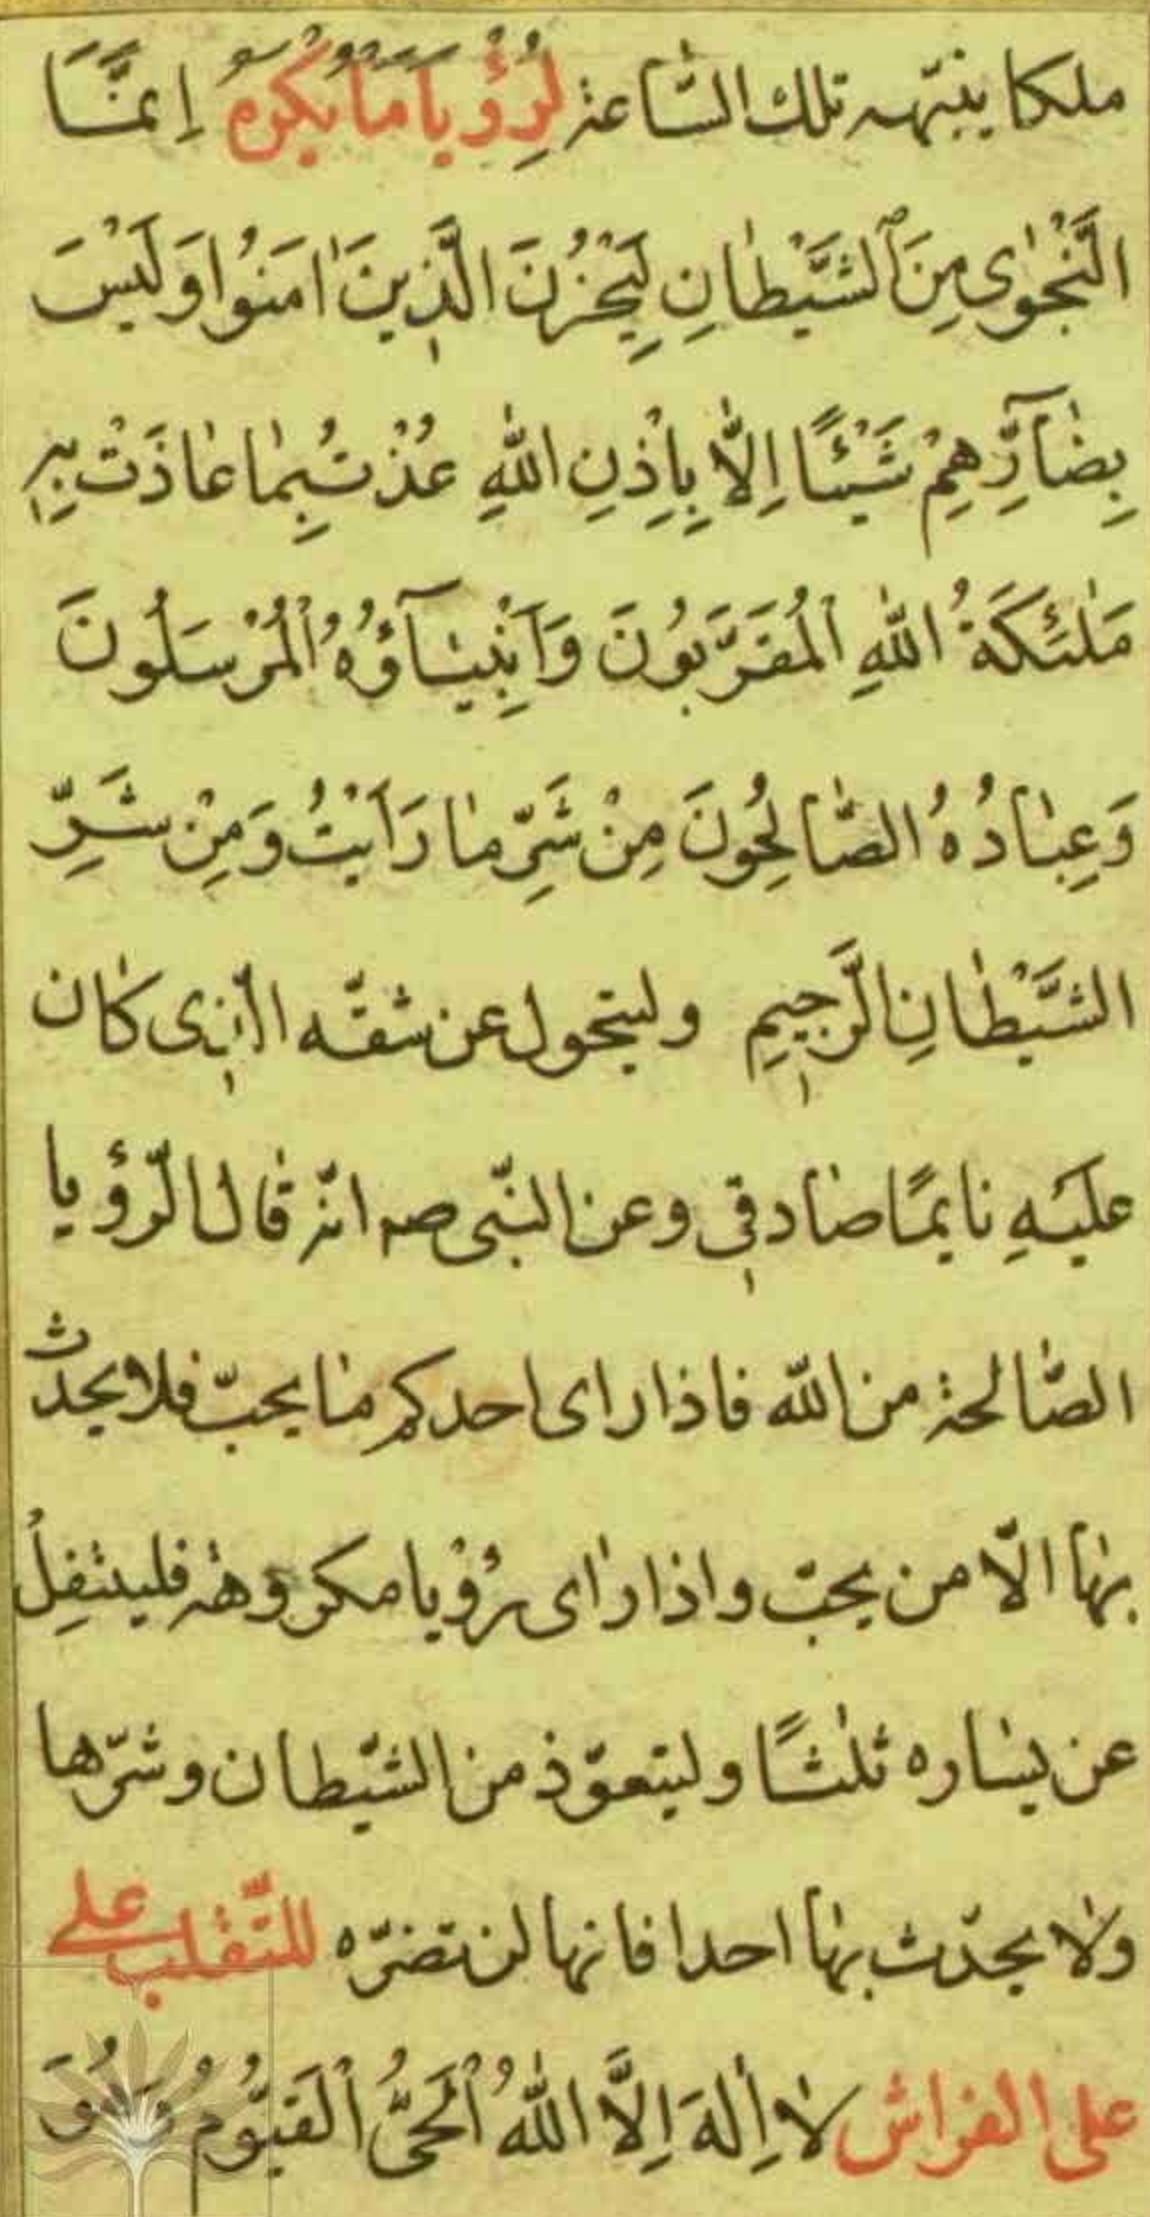 ملكا ینبّهه تلك السّاعة لِرُؤْیَا مَا یُکْرَهُ اِنَّمَا
النَّجْوٰى مِنَ ٱلشَّيْطٰانِ لِيَحْزُنَ الَّذِينَ اٰمَنُوا وَلَيْسَ
بِضٰآرِّهِمْ شَيْئًا اِلّٰا بِاِذْنِ اللّٰهِ عُذْتُ بِمٰا عٰاذَتْ بِهِ
مَلٰئِكَةُ اللّٰهِ الْمُقَرَّبُونَ وَاَنْبِيٰآؤُهُ الْمُرْسَلُونَ
وَعِبٰادُهُ الصّٰالِحُونَ مِنْ شَرِّ مٰا رَاَيْتُ وَمِنْ شَرِّ
الشَّيْطٰانِ الرَّجِيمِ وليتحول عن شقّه الّذى كٰان
عليَهِ نايمًا صٰادقى وعن النّبى صم انّه قٰال الرّؤيا
الصّٰالحة من اللّه فاذا راى احدكم مٰا يحبّ فلا يحدّث
بهٰا الّا من يحبّ واذا رٰاى رُؤْيا مكروهة فليتفِلُ
عن يسٰاره ثلٰثًا وليتعوّذ من الشّيطان وشرّها
ولٰا يحدّث بهٰا احدا فانها لن تضرّه للتّقلب على
على الفراش لٰا اِلٰهَ اِلَّا اللّٰهُ الْحَىُّ الْقَيُّومُ وَهُوَ